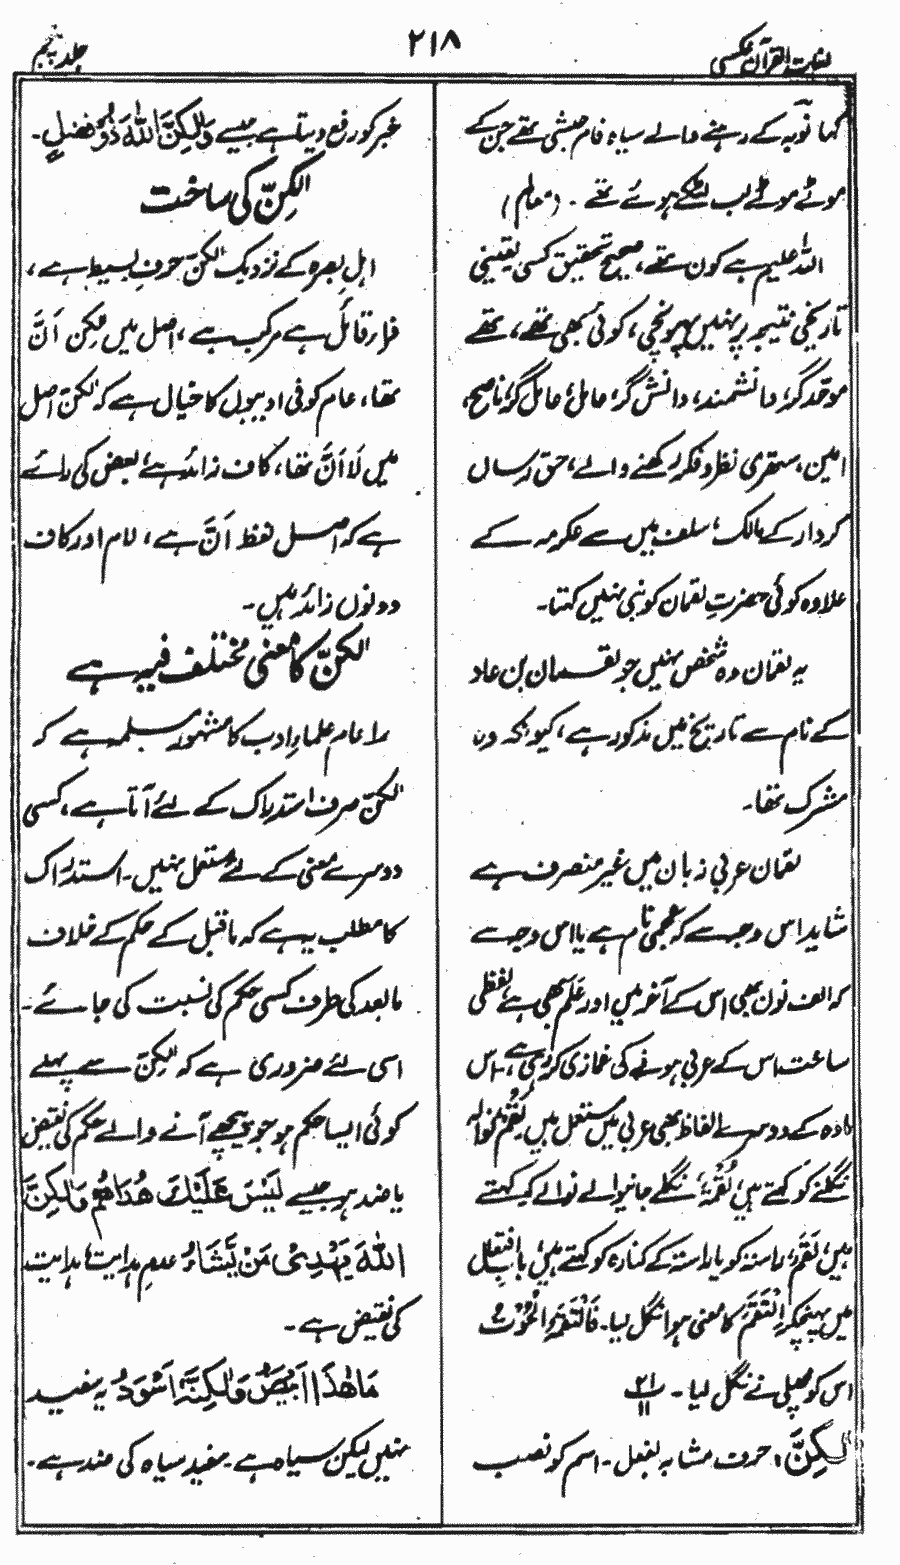 لغات القرآن عکسی
۲۱۸
جلد پنجم
کہا نوبہ کے رہنے والے سیاہ فام حبشی تھے جن کے
موٹے موٹے لب لٹکے ہوئے تھے۔ (معالم)
اللہ علیم ہے کون تھے، صحیح تحقیق کسی یقینی
تاریخی نتیجہ پر نہیں پہونچی، کوئی بھی تھے، تھے
موحّد گر، دانشمند، دانش گر، عامل، عامل گر، ناصح،
امین، ستھری نظر و فکر رکھنے والے، حق رساں
کردار کے مالک، سلف میں سے عکرمہ کے
علاوہ کوئی حضرتِ لقمان کو نبی نہیں کہتا۔
یہ لقمان وہ شخص نہیں جو لقمان بن عاد
کے نام سے تاریخ میں مذکور ہے، کیونکہ وہ
مشرک تھا۔
لقمان عربی زبان میں غیر منصرف ہے
شاید اس وجہ سے کہ عجمی نام ہے یا اس وجہ سے
کہ الف نون بھی اس کے آخر میں اور عَلَم بھی ہے لفظی
ساخت اس کے عربی ہونے کی غمازی کر رہی ہے، اس
مادہ کے دوسرے الفاظ بھی عربی میں مستعمل ہیں لَقْم نوالہ
نگلنے کو کہتے ہیں، لُقْمَۃ، نگلے جانیوالے نوالے کو کہتے
ہیں، لَقَم، راستہ کو یا راستہ کے کنارہ کو کہتے ہیں، باب افتعال
میں پہنچکر اِلْتَقَمَ کا معنی ہوا نگل لیا۔ فَالْتَقَمَہُ الْحُوْتُ
اس کو مچھلی نے نگل لیا۔ ۲۱ ۱۱
لٰکِنَّ: حرف مشابہ بفعل۔ اسم کو نصب
خبر کو رفع دیتا ہے جیسے وَلٰکِنَّ اللّٰہَ ذُوْ فَضْلٍ۔
لٰکِنّ کی ساخت
اہلِ بصرہ کے نزدیک لٰکنّ حرفِ بسیط ہے،
فراء قائل ہے مرکب ہے، اصل میں لٰکِن اَنَّ
تھا، عام کوفی ادیبوں کا خیال ہے کہ لٰکنّ اصل
میں لَا اَنَّ تھا، کاف زائد ہے، بعض کی رائے
ہے کہ اصل فقط اَنَّ ہے، لام اور کاف
دونوں زائد ہیں۔
لٰکنّ کا معنی مختلف فیہ ہے
۱۔ عام علماءِ ادب کا مشہور مسلمہ ہے کہ
لٰکنّ صرف استدراک کے لئے آتا ہے، کسی
دوسرے معنی کے لئے مستعمل نہیں۔ استدراک
کا مطلب یہ ہے کہ ماقبل کے حکم کے خلاف
مابعد کی طرف کسی حکم کی نسبت کی جائے۔
اسی لئے ضروری ہے کہ لٰکِنّ سے پہلے
کوئی ایسا حکم ہو جو پیچھے آنے والے حکم کی نقیض
یا ضد ہو جیسے لَیْسَ عَلَیْکَ ھُدَاھُمْ وَلٰکِنَّ
اللّٰہَ یَھْدِیْ مَنْ یَّشَاءُ عدمِ ہدایت، ہدایت
کی نقیض ہے۔
مَا ھٰذَا اَبْیَضُ وَلٰکِنَّہٗ اَسْوَدُ یہ سفید
نہیں لیکن سیاہ ہے۔ سفید سیاہ کی ضد ہے۔